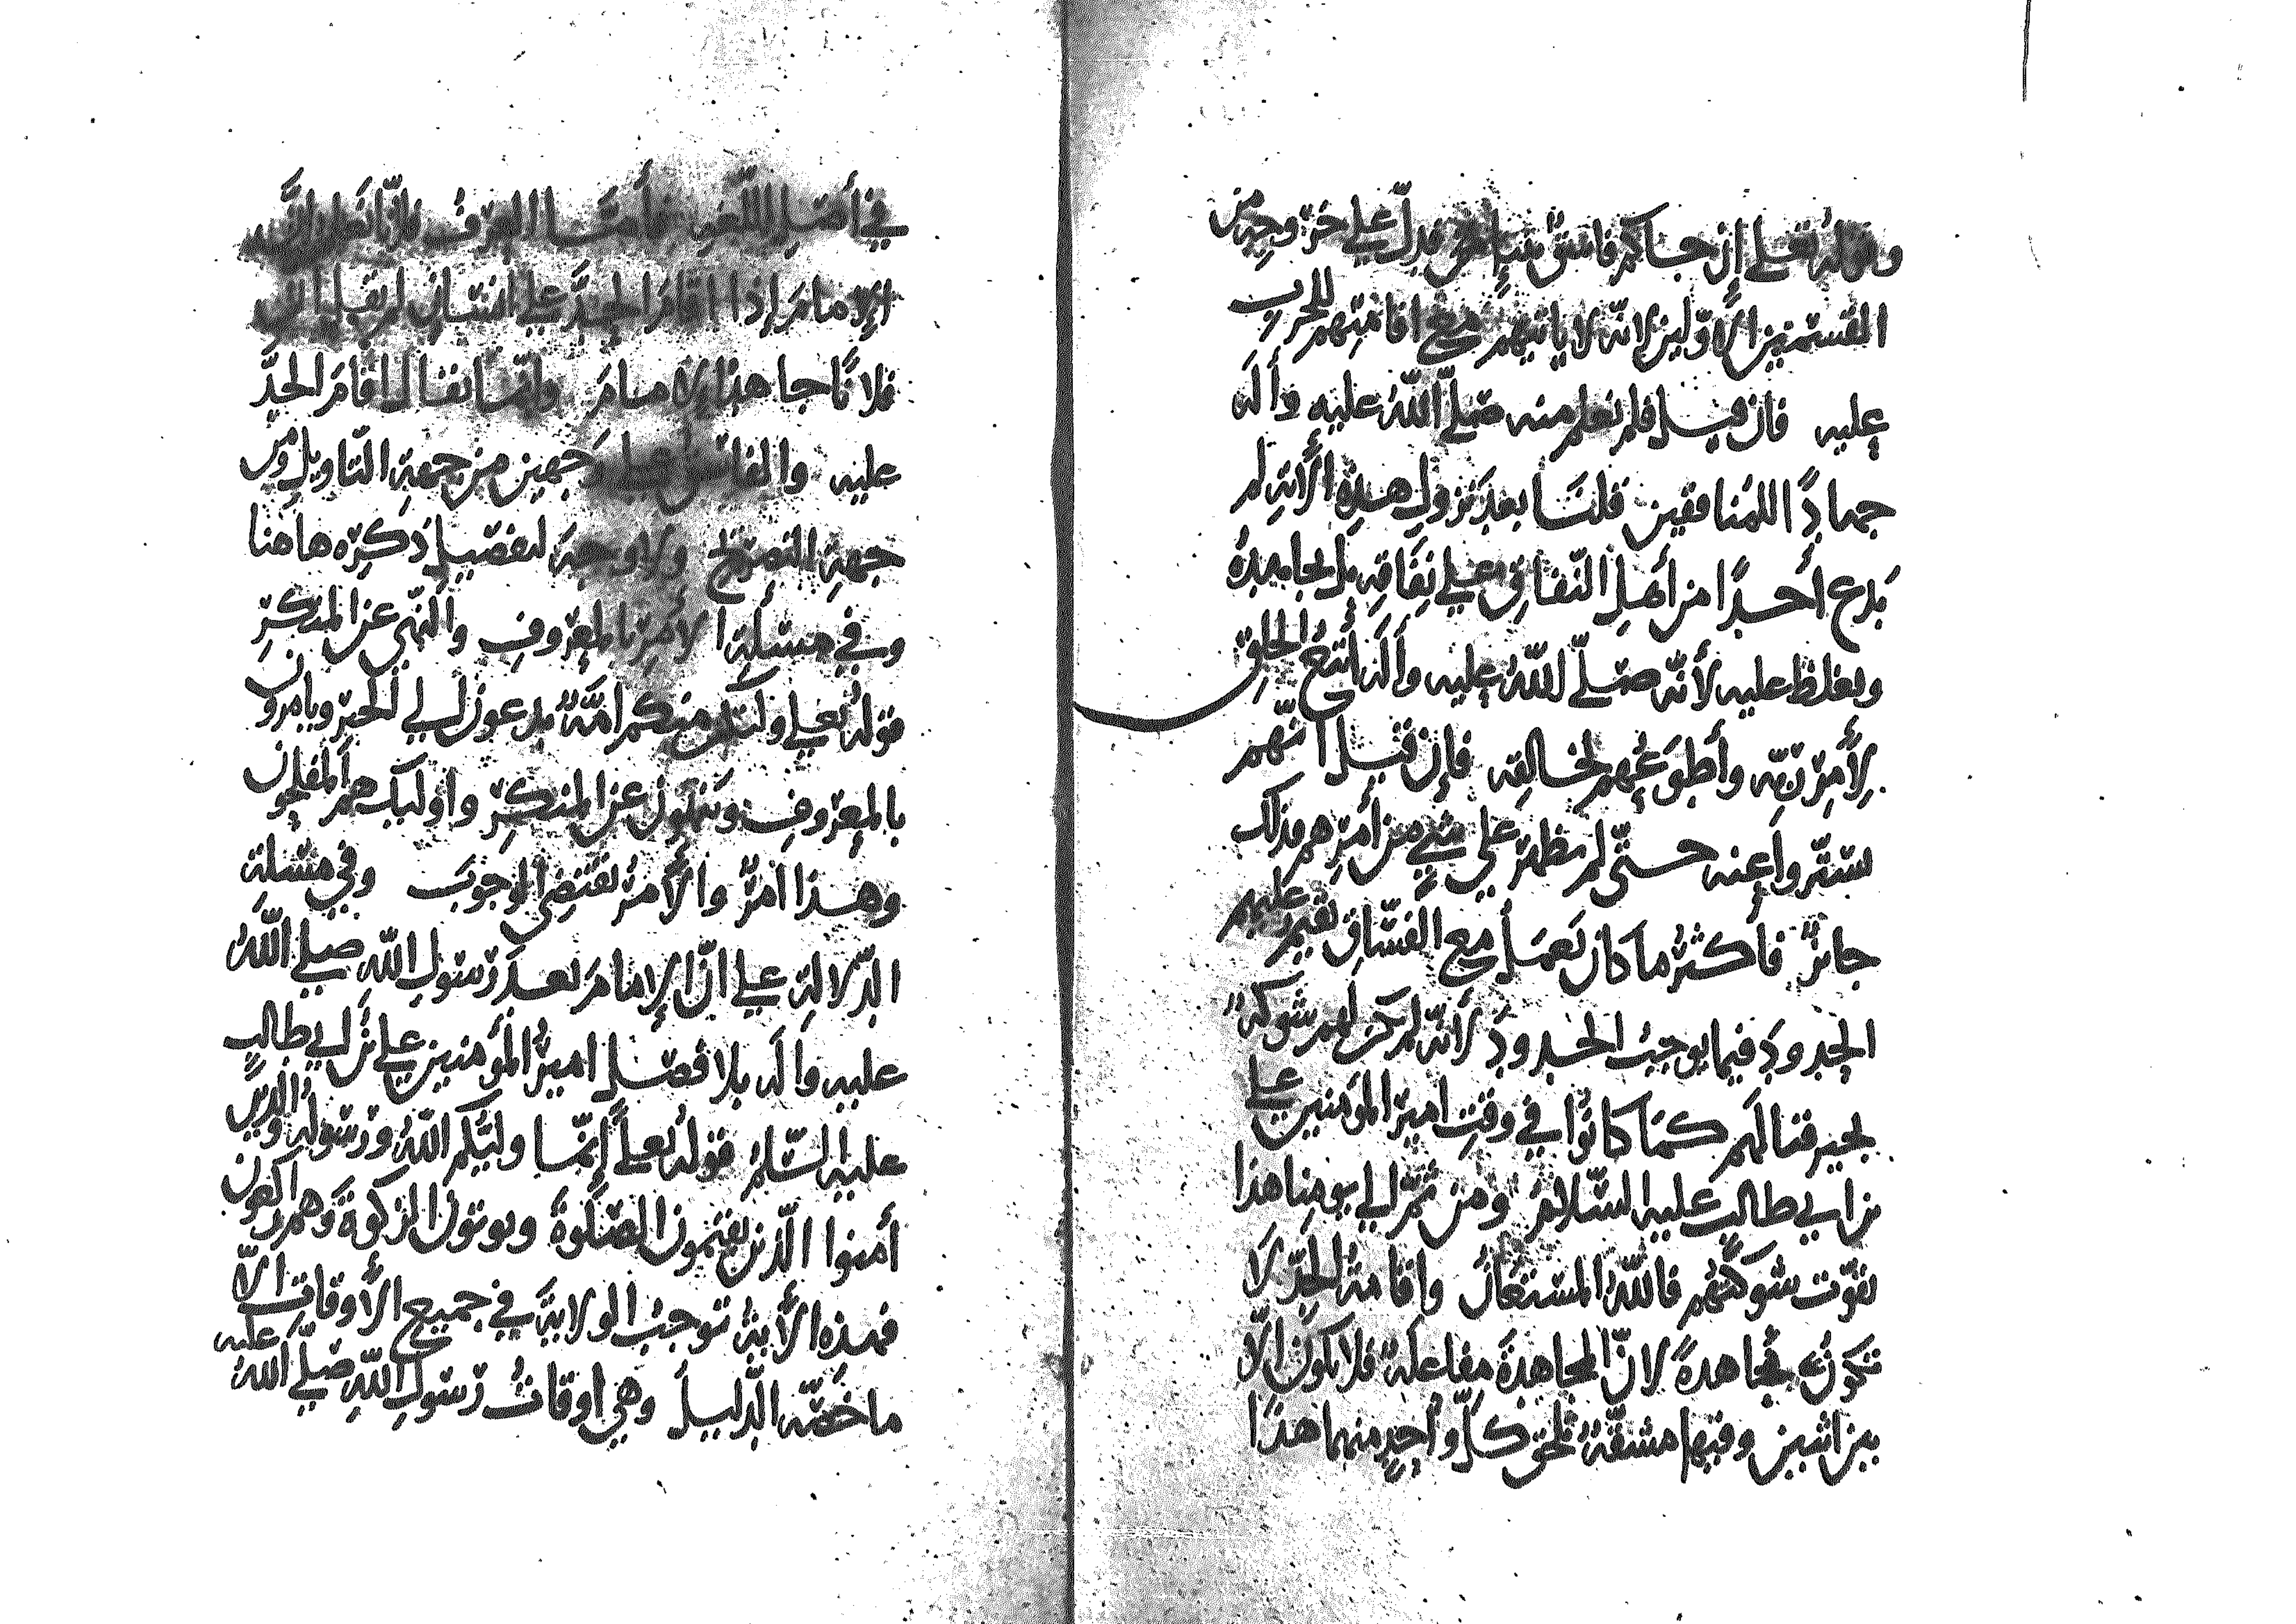 وقوله تعالى إن جاكم فاسق بنبإ يدل على خروجه من
القسمين الأولين لانه لا ياتيهم مع اقامتهم للحرب
عليه فان قيل فلم نعلم منه صلى الله عليه وأله
جهادًا للمنافقين قلنا بعد نزول هذه الأية لم
يدع أحدًا من أهل النفاق على نفاقه بل يجاهده
ويغلظ عليه لأنه صلى الله عليه وأله أنصح الخلق
لأمر ربه وأطوعهم لخالقه فإن قيل انهم
ستتروا عنه حتى لم يظهر على شيء من أمرهم فذلك
جائز فأكثر ما كان يعمل مع الفساق يقيم عليهم
الحدود فيما يوجب الحدود لأنه لم تكن لهم شوكة
قتالهم كما كانوا في وقت امير المؤمنين على
بن ابي طالب عليه السلام ومن ثم الى يومنا هذا
تقوت شوكتهم فالله المستعان واقامة الحد لا
تكون مجاهدة لان المجاهدة مفاعلة فلا تكون الا
بين اثنين وفيها مشقة تلحق كل واحد منهما هذا
في أصل اللغة فأما العرف فلانا نعلم ان
الإمام إذا اقام الحد على انسان لم يقل
فلانًا جاهد الإمام وانما يقال اقام الحد
عليه والفاسق على وجهين من جهة التاويل ومن
جهة التصريح ولا وجه لتفصيل ذكره هاهنا
وفي مسئلة الأمر بالمعروف والنهي عن المنكر
قوله تعلى ولتكن منكم امة يدعون الى الخير ويامرون
بالمعروف وينهون عن المنكر واوليك هم المفلحون
وهذا امر والأمر يقتضي الوجوب وفي مسئلة
الدلالة على ان الإمام بعد رسول الله صلى الله
عليه واله بلا فصل امير المؤمنين على بن ابي طالب
عليه السلم قوله تعلى إنما وليكم الله ورسوله والذين
أمنوا الذين يقيمون الصلوة ويوتون الزكوة وهم راكعون
فهذه الأية توجب الولاية في جميع الأوقات الا
ما خصه الدليل وهي اوقات رسول الله صلى الله عليه